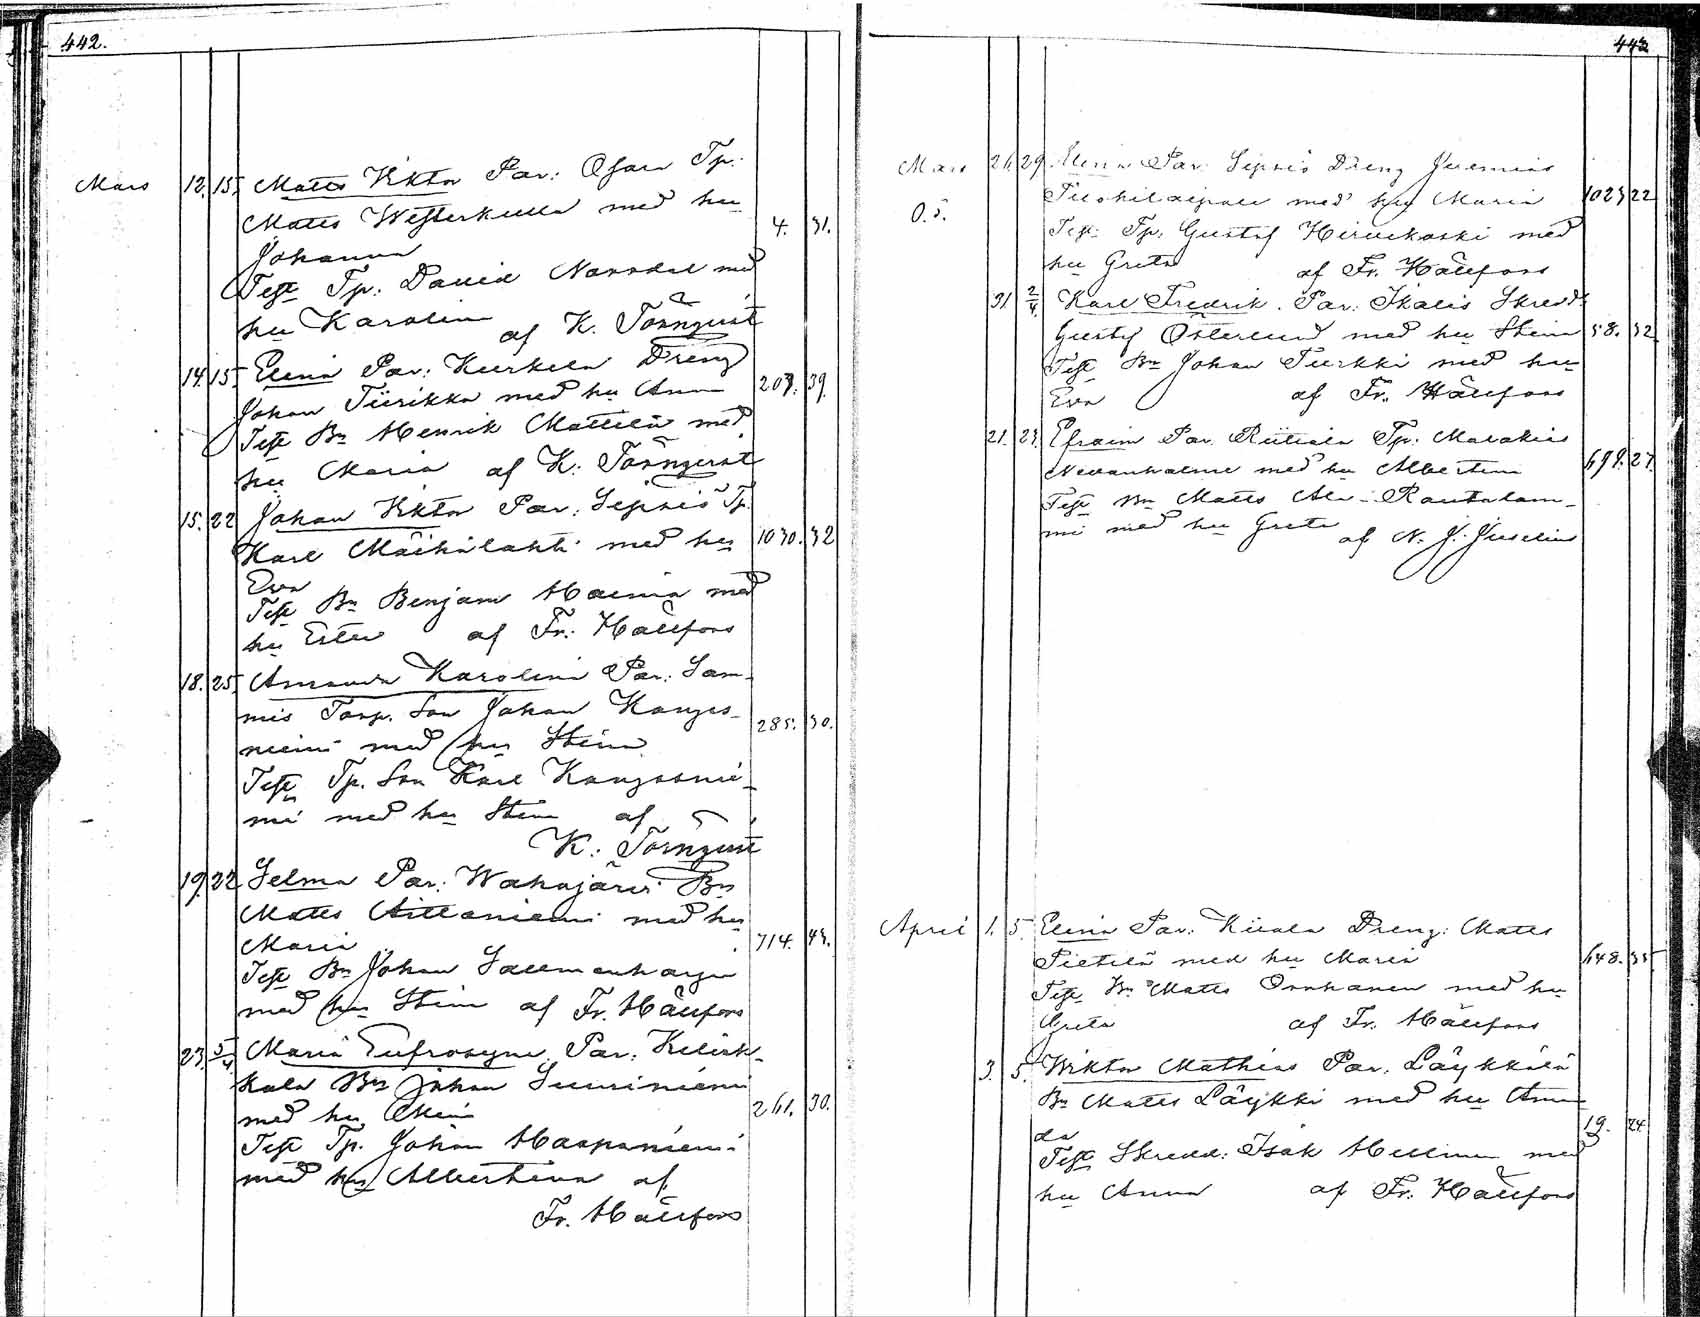 442.
Mars 12. 15. Matts Viktor Par: Ofars Tp:
Matts Westerkulla med hu
Johanna 4. 31.
Test Tp: David Norrdal med
hu Karolin af K. Törnqvist
14. 15. Elina Par: Kurkela Dräng
Johan Tiirikka med hu Anna 207. 39.
Test Bn Henrik Mattila med
hu Maria af K: Törnqvist
15. 22 Johan Viktor Par: Seppis Tp.
Karl Mäihälahti med hu 1030. 32
Eva
Test Bn Benjam med
hu Ester af Fr: Hällfors
18. 25. Amanda Karolina Par: Sam-
mis Torp. Son Johan Kanges-
niemi med hu Stina 285. 30.
Test Tp. Son Karl Kangasnie-
mi med hu Stina af
K: Törnqvist
19. 22 Selma Par: Wahojärvi Bn
Matts med hu
Maria 714. 43.
Test Bn Johan Sallmenharju
med hu Stina af Fr. Hällfors
23. 5/4. Maria Eufrosyne Par: Kilisk-
kala Bn Johan Suuriniemi
med hu 261. 30.
Test Tp. Johan Haapaniemi
med hu Albertina af
Fr. Hällfors
443
Mars 26. 29. Elina Par: Seppis Dräng Jeremias
med hu Maria 1023 22
O.ä.
Test: Tp: Gustaf Hirvikoski med
hu Greta af Fr. Hällfors
31. 2/4. Karl Fredrik. Par: Ikalis Skredd.
Gustaf Österlund med hu Stina 58. 32
Test Bn Johan Turkki med hu
Eva af Fr. Hällfors
21. 23. Efraim Par. Riitiala Tp: Malakias
Nevanhalme med hu Albertina 699. 27.
Test Bn Matts Ala-Rautalam-
mi med hu Greta af N. J. Juselius
April 1. 5. Elina Par: Kiiala Dreng: Matts
Pietilä med hu Maria 648. 35.
Test Bn Matts Ornhanen med hu
Greta af Fr. Hällfors
3. 5. Wiktor Mathias Par. Läykkälä
Bn Matts Läykki med hu Aman
da 19. 24
Test Skredd: Isak Hellman med
hu Anna af Fr. Hällfors